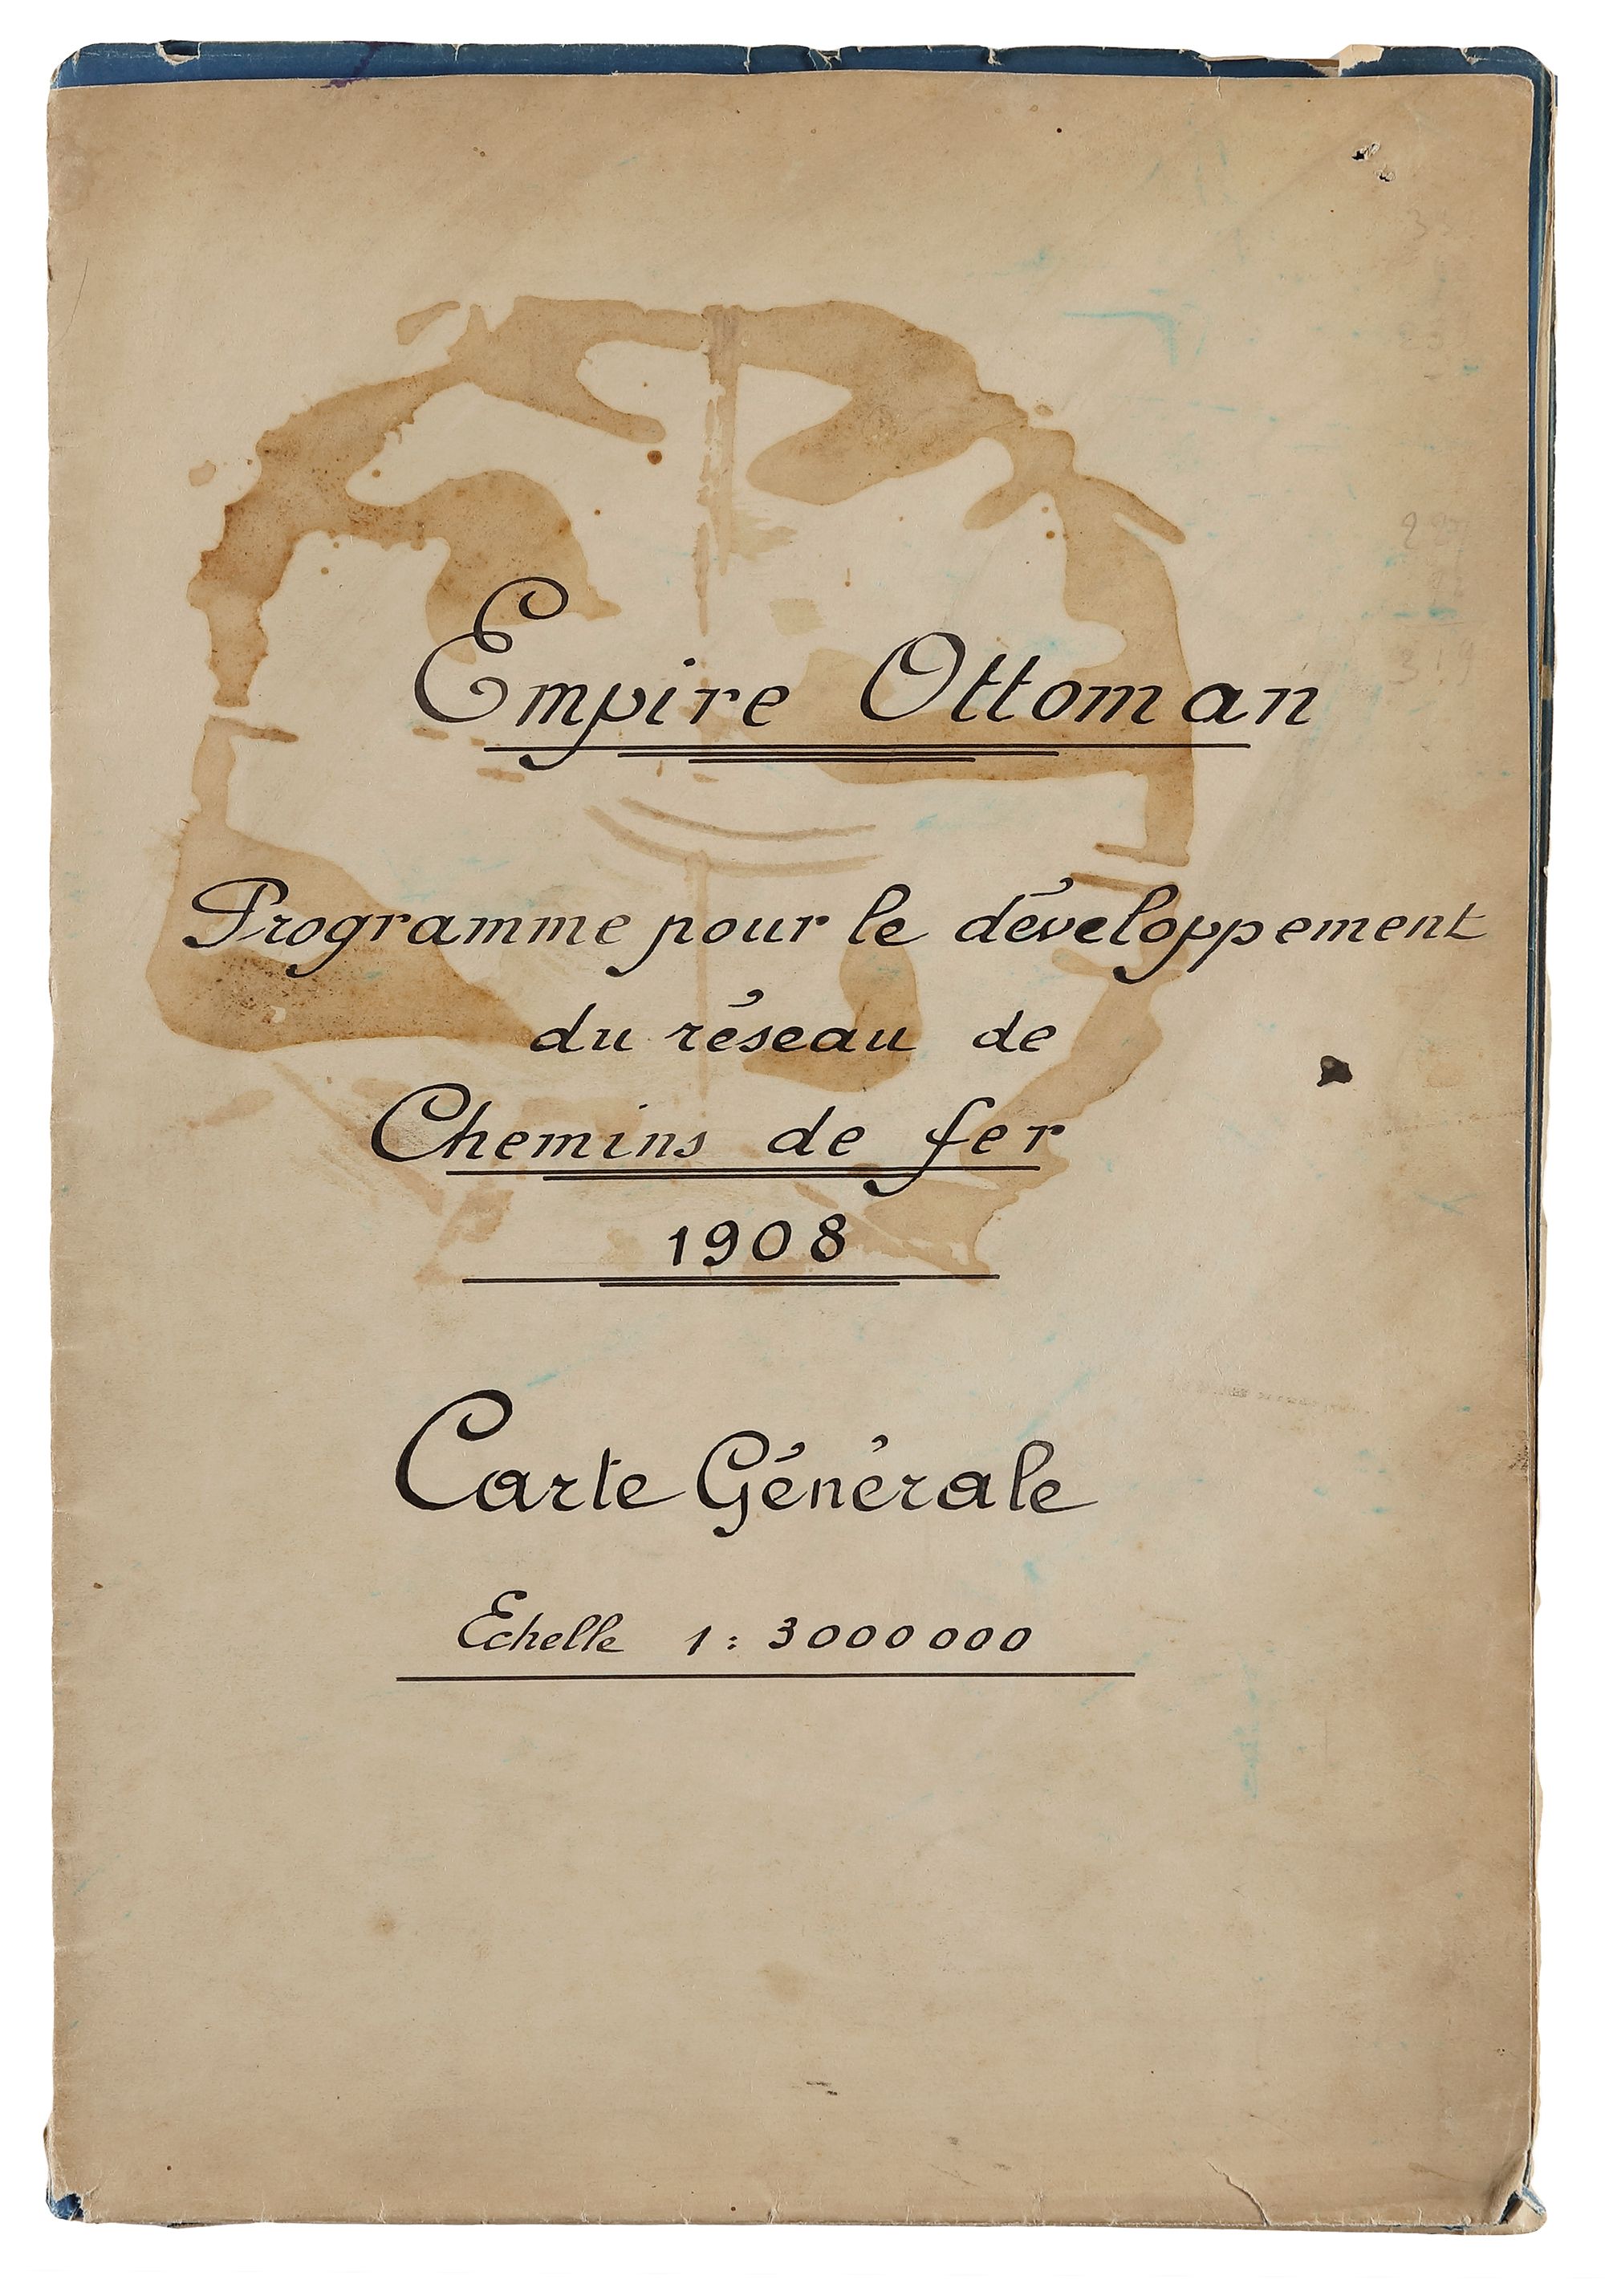 Empire Ottoman
Programme pour le développement
du réseau de
Chemins de fer
1908
Carte Générale
Echelle 1:3000000